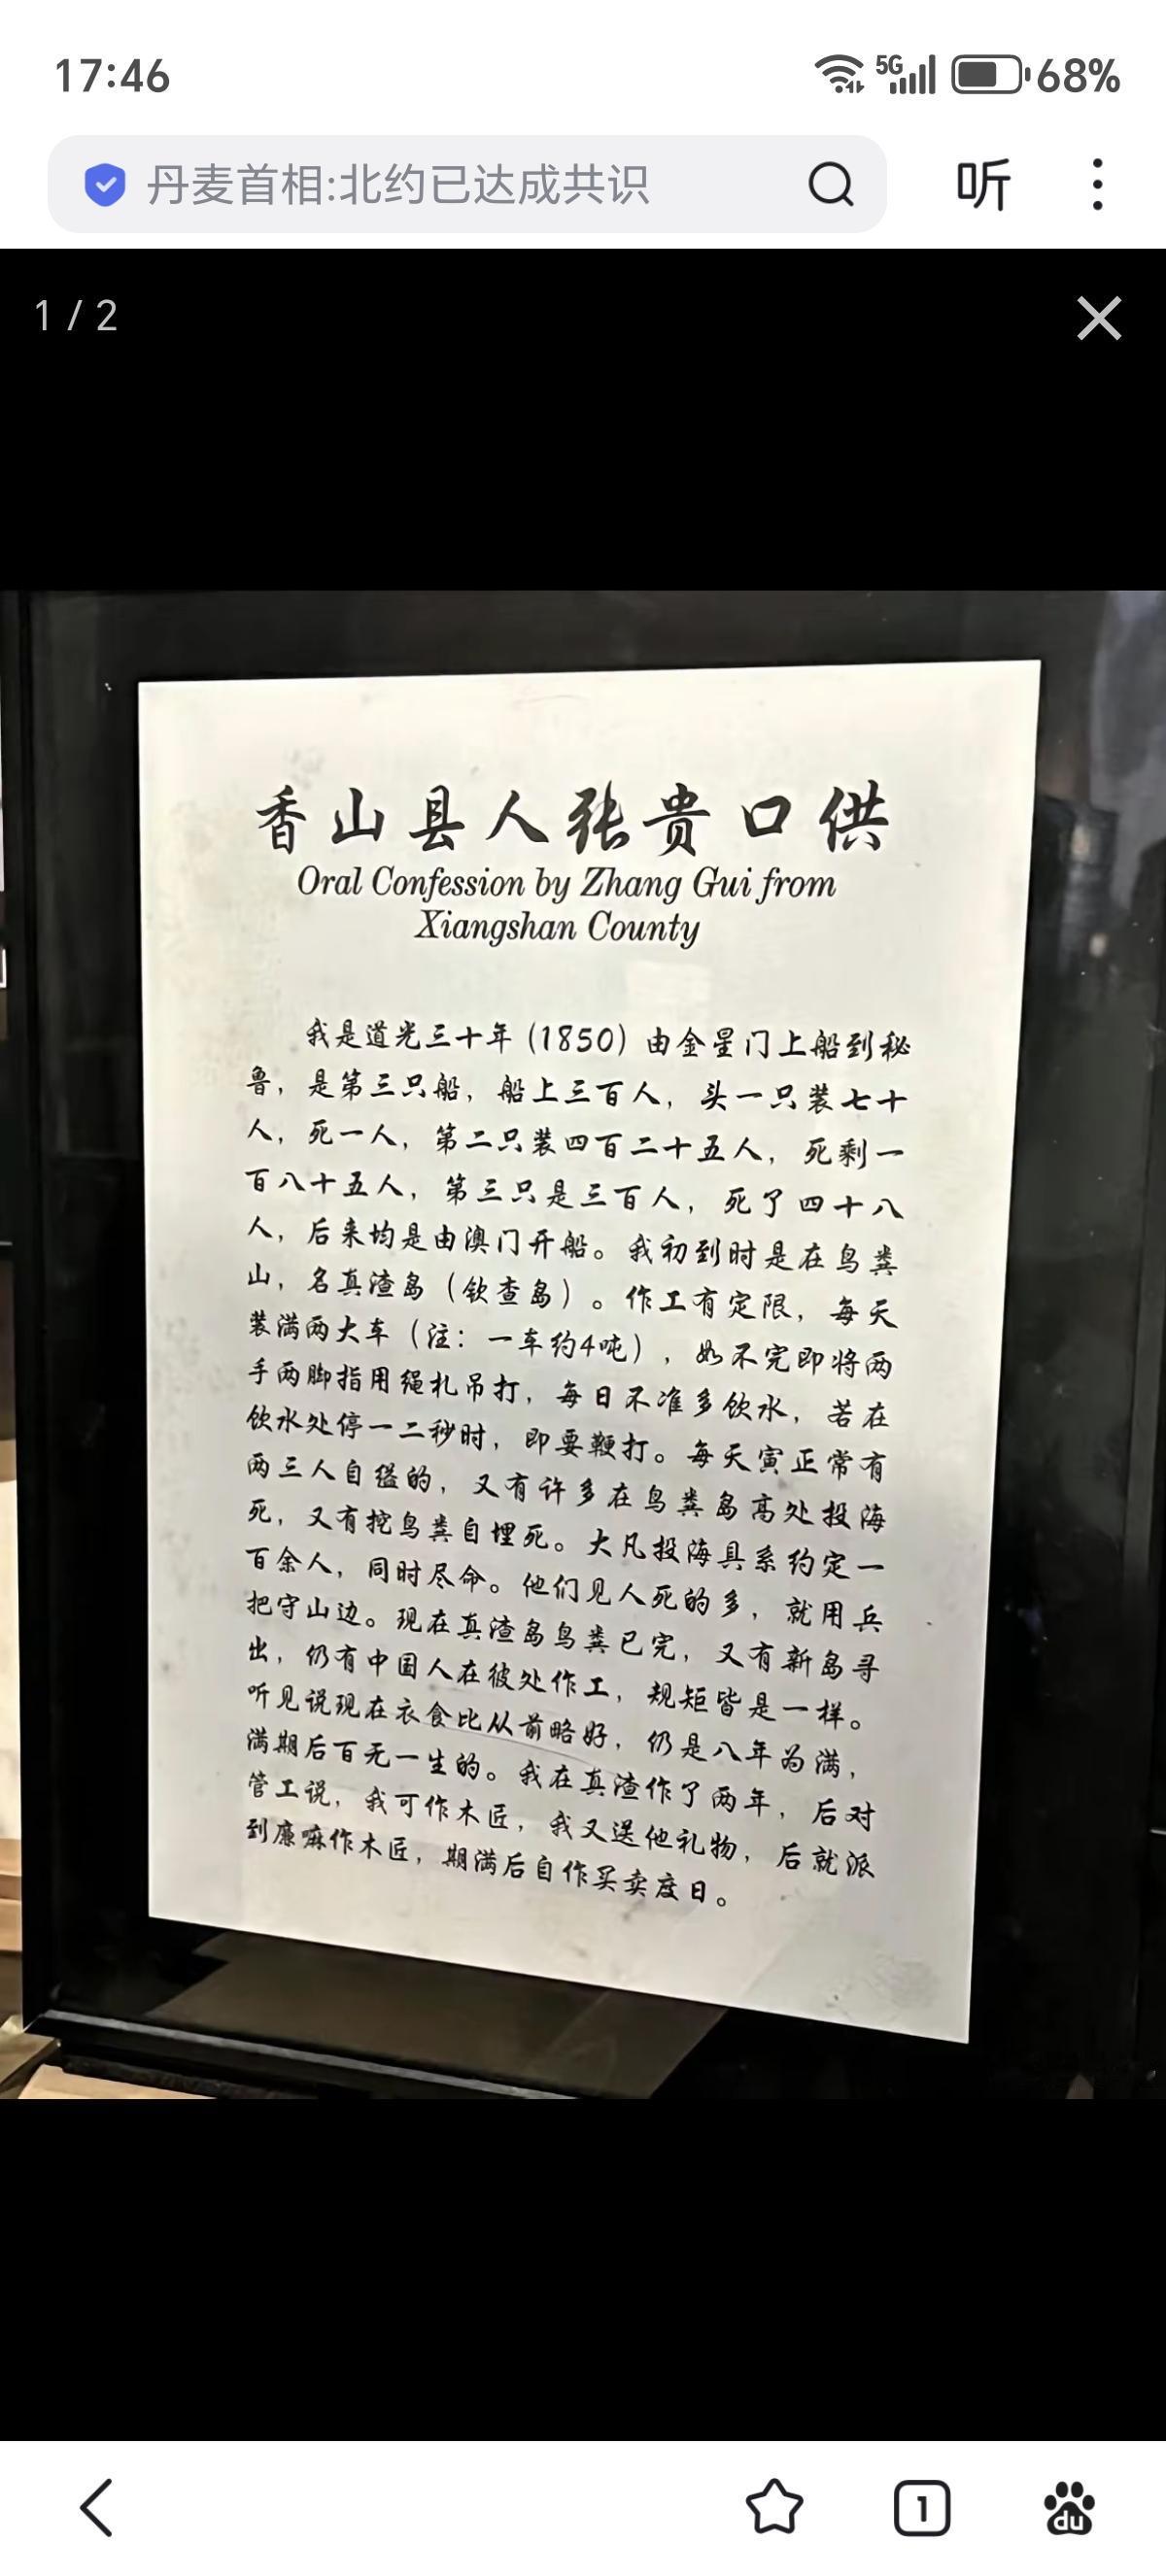 17:46
5G
68%
丹麦首相:北约已达成共识
听
1 / 2
香山县人张贵口供
Oral Confession by Zhang Gui from
Xiangshan County
我是道光三十年(1850)由金星门上船到秘
鲁，是第三只船，船上三百人，头一只装七十
人，死一人，第二只装四百二十五人，死剩一
百八十五人，第三只是三百人，死了四十八
人，后来均是由澳门开船。我初到时是在鸟粪
山，名真渣岛（钦查岛）。作工有定限，每天
装满两大车（注：一车约4吨），如不完即将两
手两脚指用绳扎吊打，每日不准多饮水，若在
饮水处停一二秒时，即要鞭打。每天寅正常有
两三人自缢的，又有许多在鸟粪岛高处投海
死，又有挖鸟粪自埋死。大凡投海具系约定一
百余人，同时尽命。他们见人死的多，就用兵
把守山边。现在真渣岛鸟粪已完，又有新岛寻
出，仍有中国人在彼处作工，规矩皆是一样。
听见说现在衣食比从前略好，仍是八年为满，
满期后百无一生的。我在真渣作了两年，后对
管工说，我可作木匠，我又送他礼物，后就派
到廉嘛作木匠，期满后自作买卖度日。
1
du